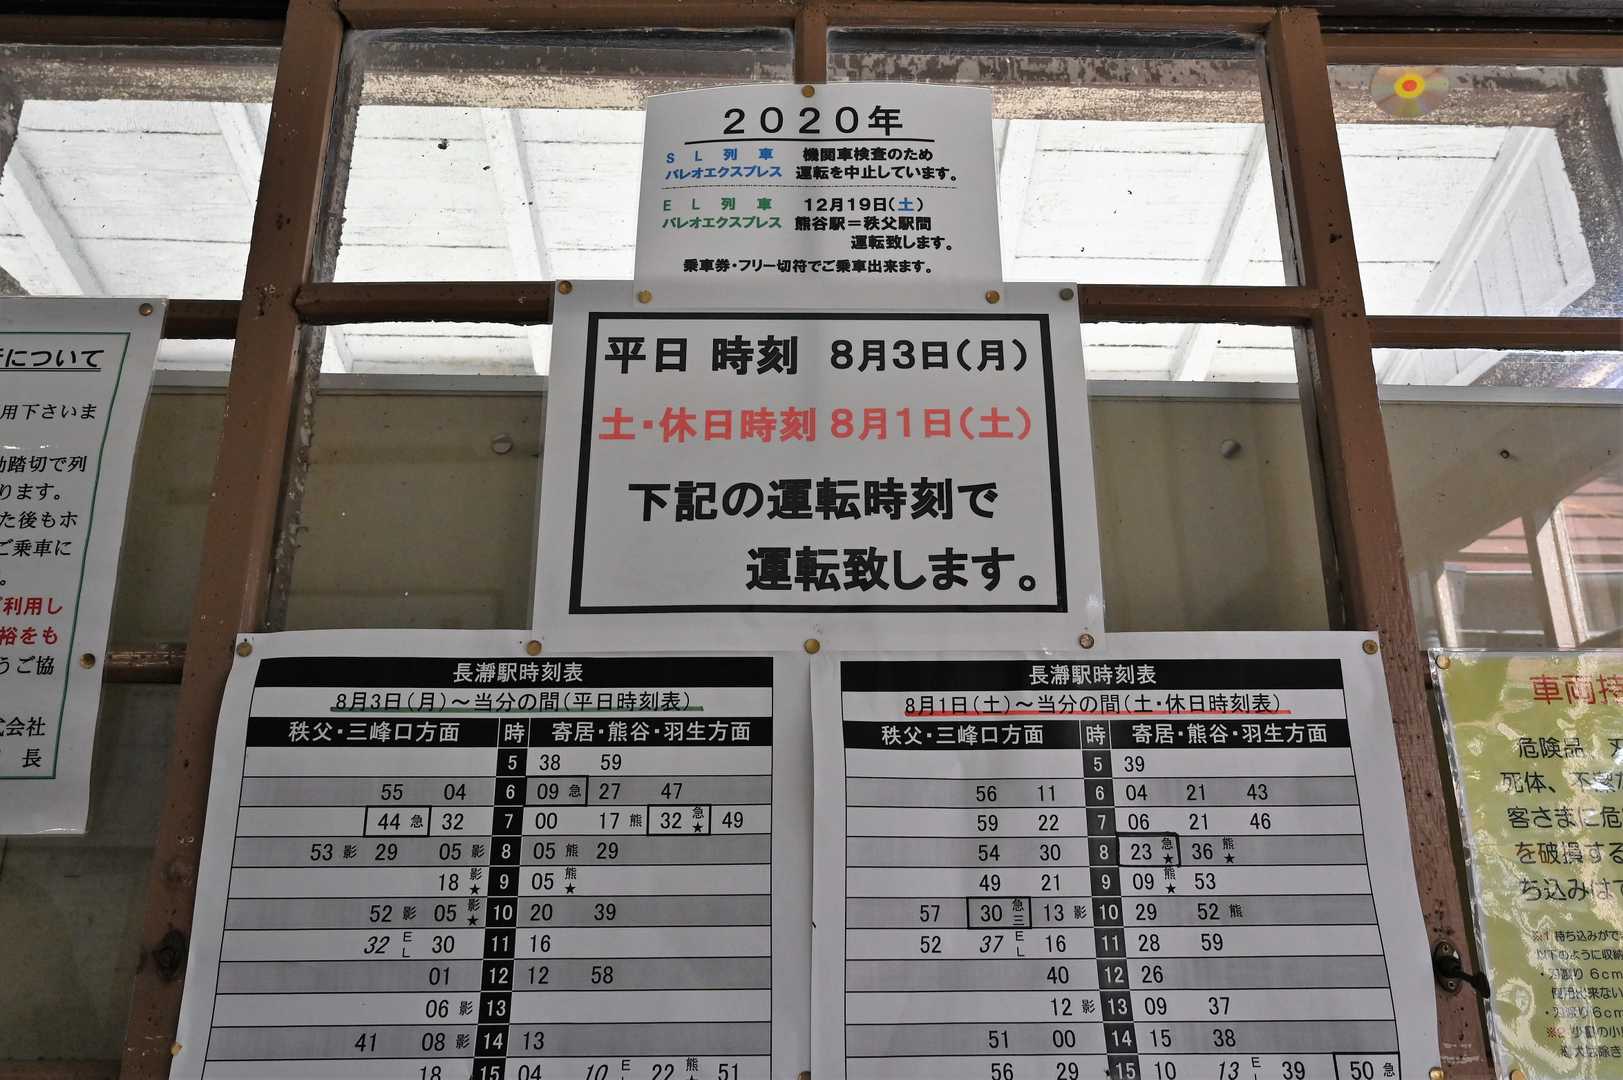 2020年
SL列車 機関車検査のため
パレオエクスプレス 運転を中止しています。
EL列車 12月19日(土)
パレオエクスプレス 熊谷駅=秩父駅間
運転致します。
乗車券・フリー切符でご乗車出来ます。
平日 時刻 8月3日(月)
土・休日時刻 8月1日(土)
下記の運転時刻で
運転致します。
について
用下さいま
踏切で列
ります。
た後もホ
ご乗車に
。
利用し
裕をも
うご協
式会社
長
長瀞駅時刻表
8月3日(月)～当分の間(平日時刻表)
秩父・三峰口方面 時 寄居・熊谷・羽生方面
5 38 59
55 04 6 09急 27 47
44急 32 7 00 17熊 32急★ 49
53影 29 05影 8 05熊 29
18影★ 9 05熊★
52影 05影★ 10 20 39
32EL 30 11 16
01 12 12 58
06影 13
41 08影 14 13
18 15 04 10E 22熊 51
長瀞駅時刻表
8月1日(土)～当分の間(土・休日時刻表)
秩父・三峰口方面 時 寄居・熊谷・羽生方面
5 39
56 11 6 04 21 43
59 22 7 06 21 46
54 30 8 23急★ 36熊★
49 21 9 09熊★ 53
57 30急三 13影 10 29 52熊
52 37EL 16 11 28 59
40 12 26
12影 13 09 37
51 00 14 15 38
56 29 15 10 13E 39 50急
車両
危険品
死体、不潔
客さまに危
を破損する
ち込みは
※1 持ち込みがで
以下のように収納
・刃渡り6cm
使用出来ない
・刃渡り6cm